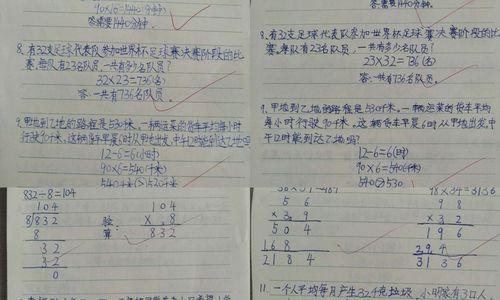 90×16=1440(分钟)
答:需要1440分钟.
8.有32支足球代表队参加世界杯足球赛决赛阶段的比
赛,每队有23名队员,一共有多少名队员?
32×23=736(名)
答:一共有736名队员.
9.甲地到乙地的路程是530千米.一辆运菜的货车平均每小时
行驶90千米,这辆货车早晨6时从甲地出发,中午12时能到达乙地吗
12-6=6(小时)
90×6=540(千米)
540千米>530千米
答:需要1440分钟.
8.有32支足球代表队参加世界杯足球赛决赛阶段的比
赛,每队有23名队员,一共有多少名队员?
23×32=736(名)
答:一共有736名队员.
9.甲地到乙地的路程是530千米.一辆运菜的货车平均
每小时行驶90千米,这辆货车早晨6时从甲地出发,中
午12时能到达乙地吗?
12-6=6(时)
90×6=540(千米)
540>530
832÷8=104
104
8/832
8
32
32
0
验算:
104
×8
832
56
×39
504
168
2184
98×34=3136
98
×32
196
294
3136
11.一个人平均每月产生32千克垃圾,小明家有3口人